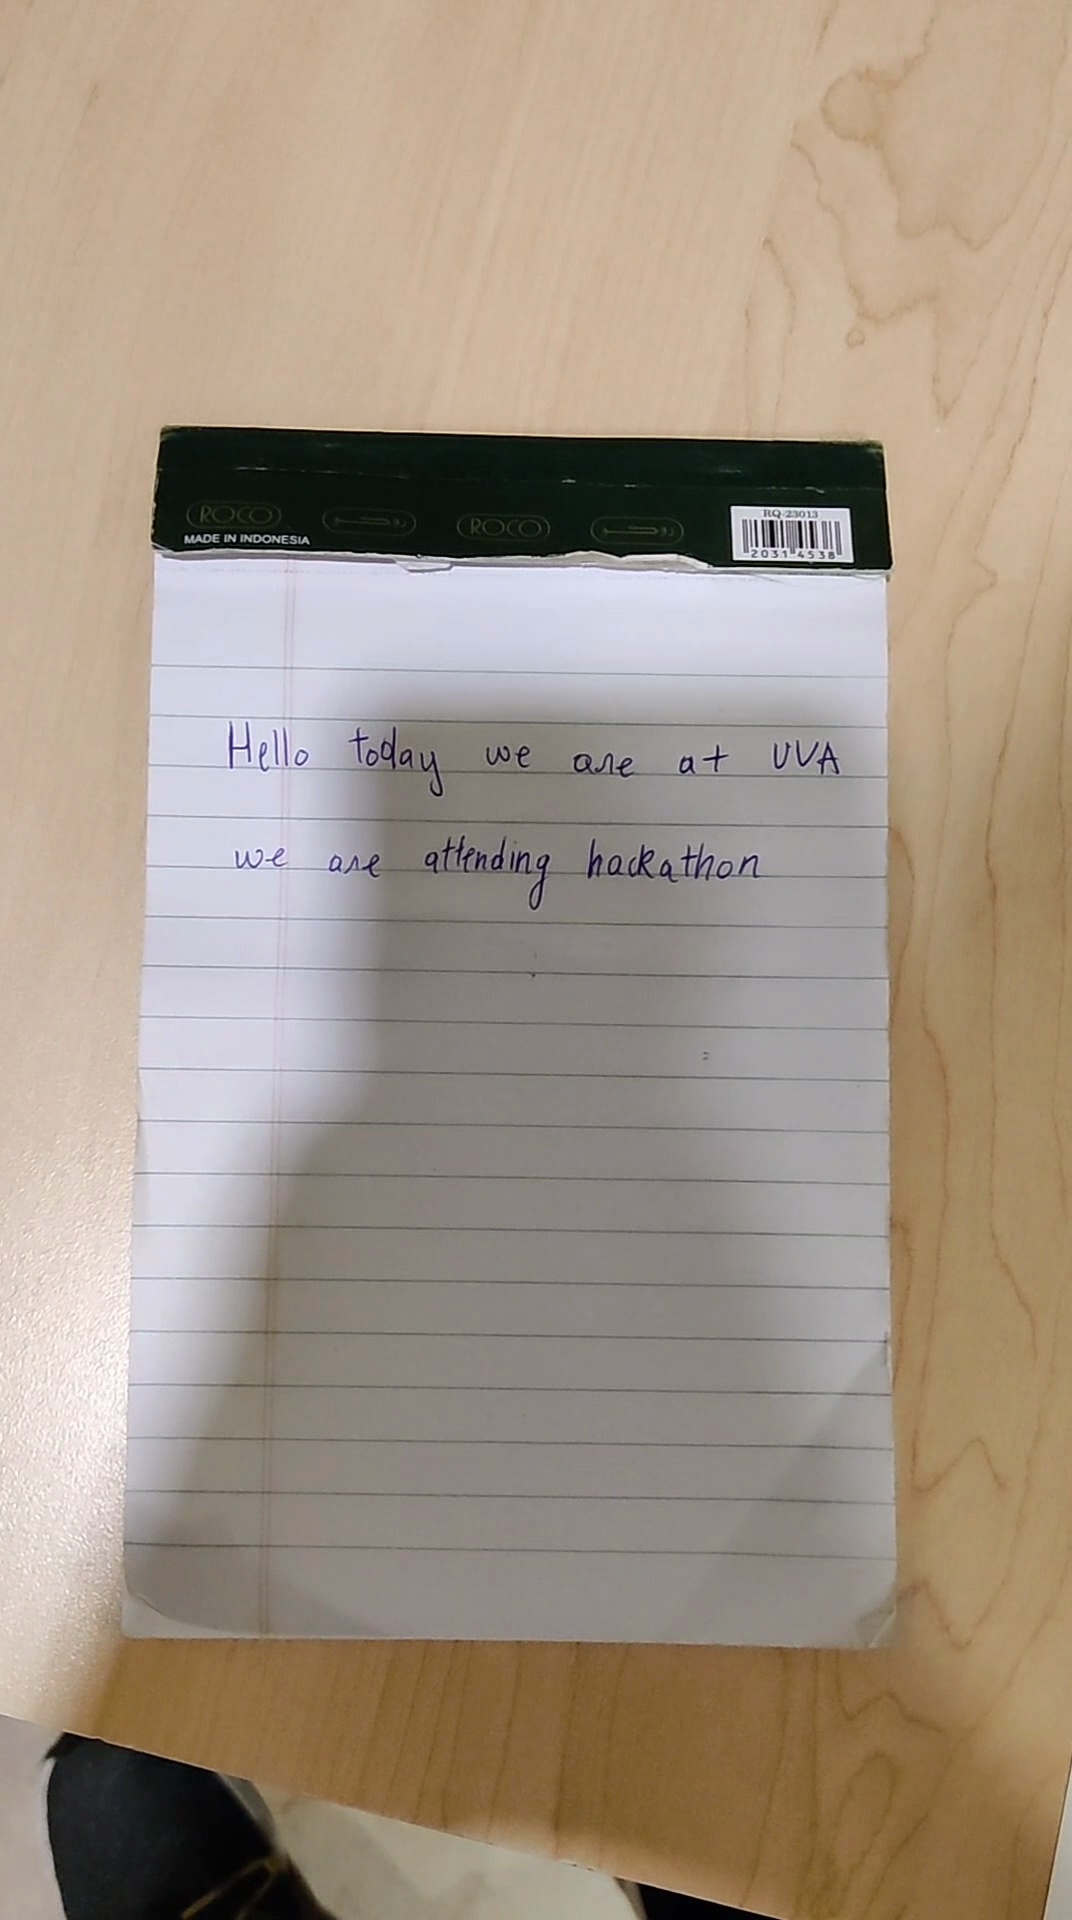 ROCO ROCO
MADE IN INDONESIA
RQ-23013
2031 4538
Hello today we are at UVA
we are attending hackathon